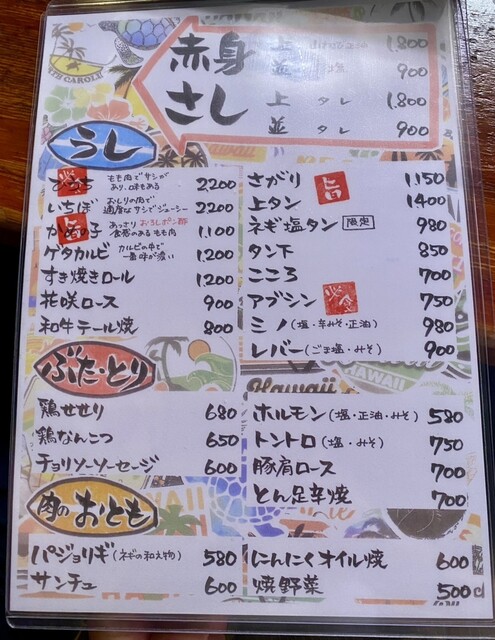 赤身
さし
上 1,800
並 900
上 タレ 1,800
並 タレ 900
うし
もも肉でサシが
あり、味もある
2200
いちぼ おしりの肉で
適度なサシでジューシー 2,200
かめの子 あっさり おろしポン酢
食感のあるもも肉 1,100
ゲタカルビ カルビの中で
一番味が濃い 1,200
すき焼きロール 1200
花咲ロース 900
和牛テール焼 800
さがり 旨 1,150
上タン 1400
ネギ塩タン 限定 980
タン下 850
こころ 700
アブシン 必食 750
ミノ(塩・辛みそ・正油) 980
レバー(ごま塩・みそ) 900
ぶた・とり
鶏せせり 680
鶏なんこつ 650
チョリソーソーセージ 600
ホルモン(塩・正油・みそ) 580
トントロ(塩・みそ) 750
豚肩ロース 700
とん足辛焼 700
肉のおとも
パジョリギ(ネギの和え物) 580
サンチュ 600
にんにくオイル焼 600
焼野菜 500
Hawaii
HAWAII